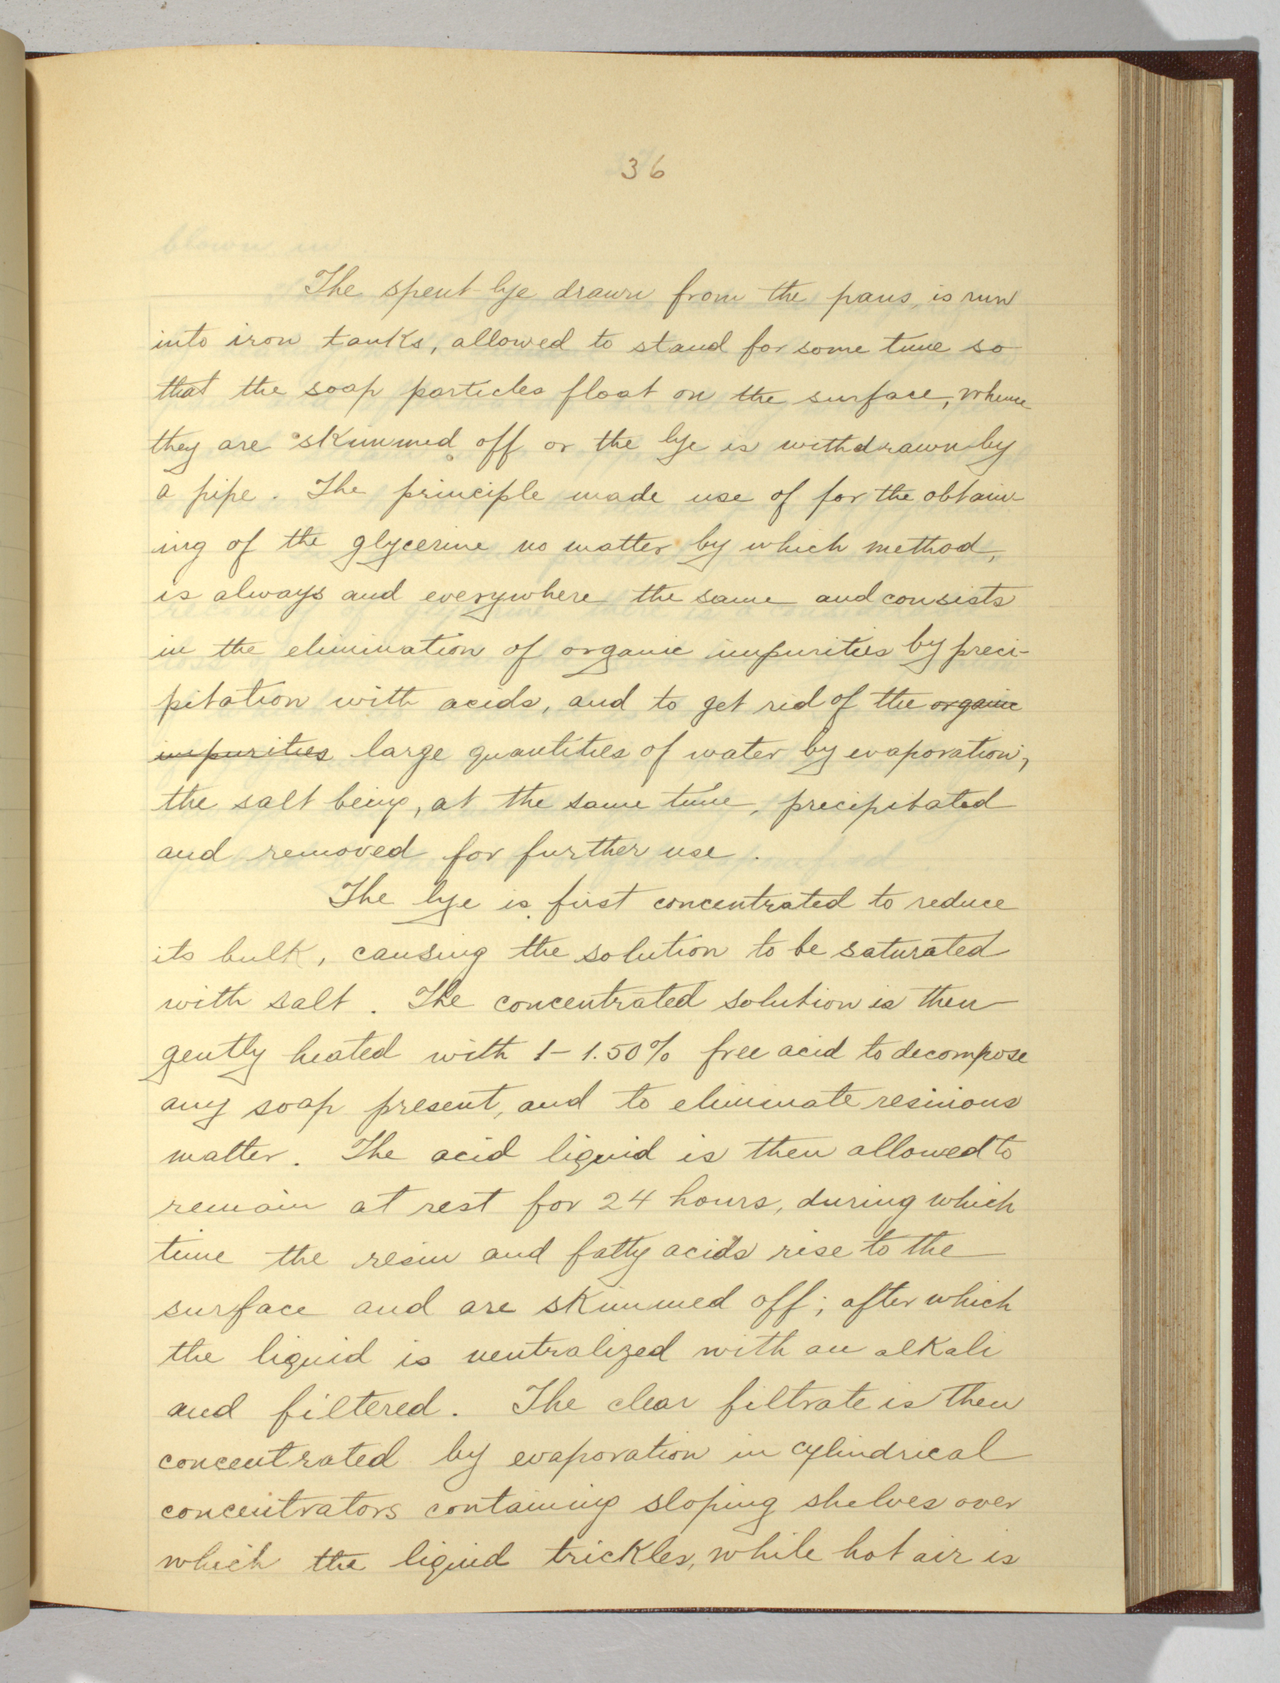 36
The spent lye drawn from the pans, is run
into iron tanks, allowed to stand for some time so
that the soap particles float on the surface, whence
they are skimmed off or the lye is withdrawn by
a pipe. The principle made use of for the obtain
ing of the glycerine no matter by which method,
is always and everywhere the same and consists
in the elimination of organic impurities by preci-
pitation with acids, and to get rid of the organic
impurities large quantities of water by evaporation,
the salt being, at the same time, precipitated
and removed for further use.
The lye is first concentrated to reduce
its bulk, causing the solution to be saturated
with salt. The concentrated solution is then
gently heated with 1-1.50% free acid to decompose
any soap present, and to eliminate resinous
matter. The acid liquid is then allowed to
remain at rest for 24 hours, during which
time the resin and fatty acids rise to the
surface and are skimmed off; after which
the liquid is neutralized with an alkali
and filtered. The clear filtrate is then
concentrated by evaporation in cylindrical
concentrators containing sloping shelves over
which the liquid trickles, while hot air is